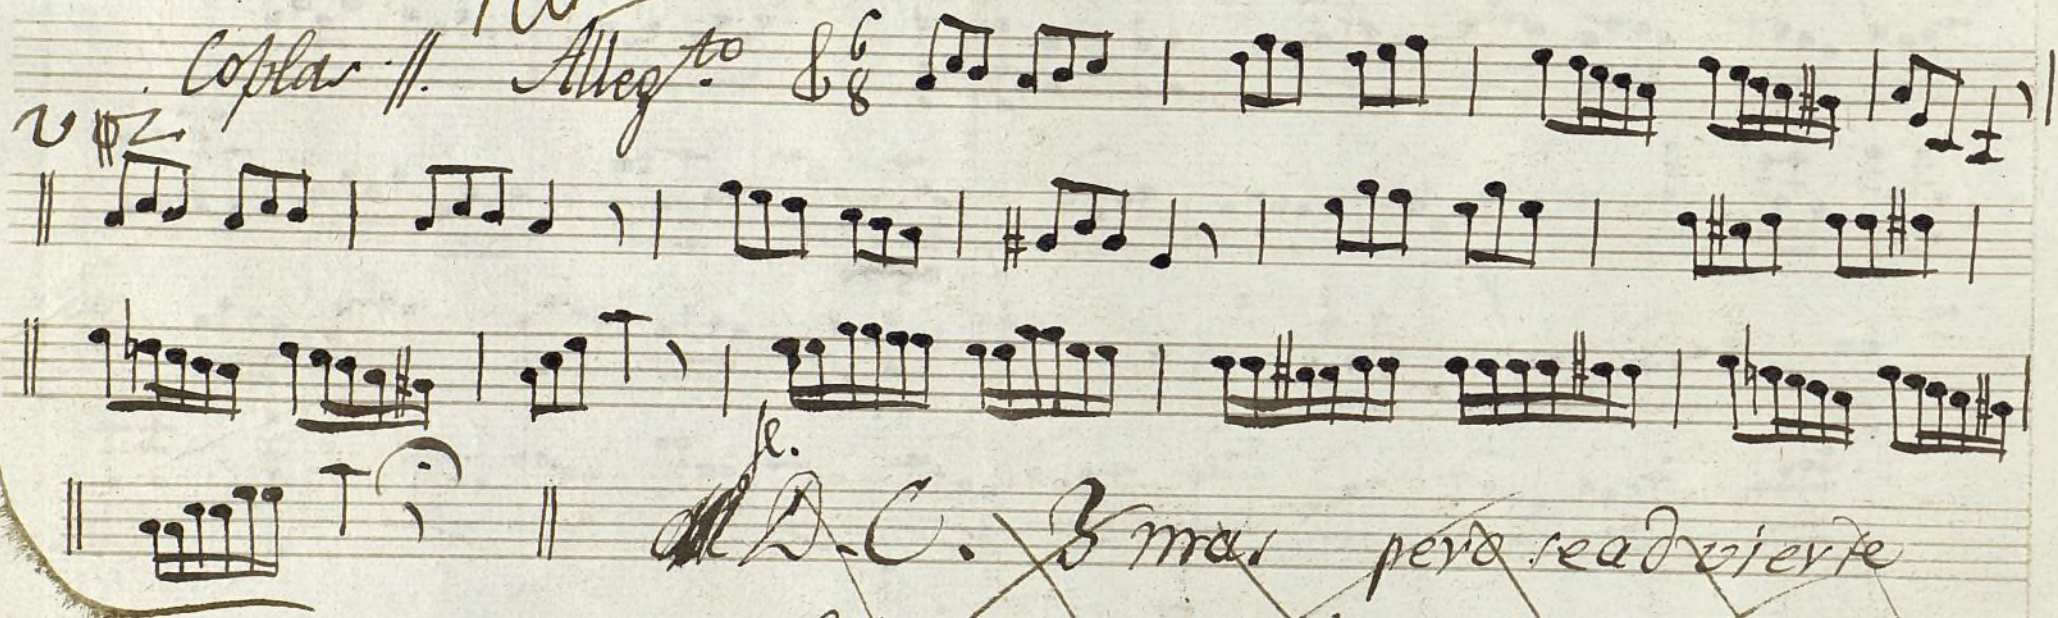 Coplas //. Alleg.to 6 8
fe.
D. C. 3 mas pero se advierte